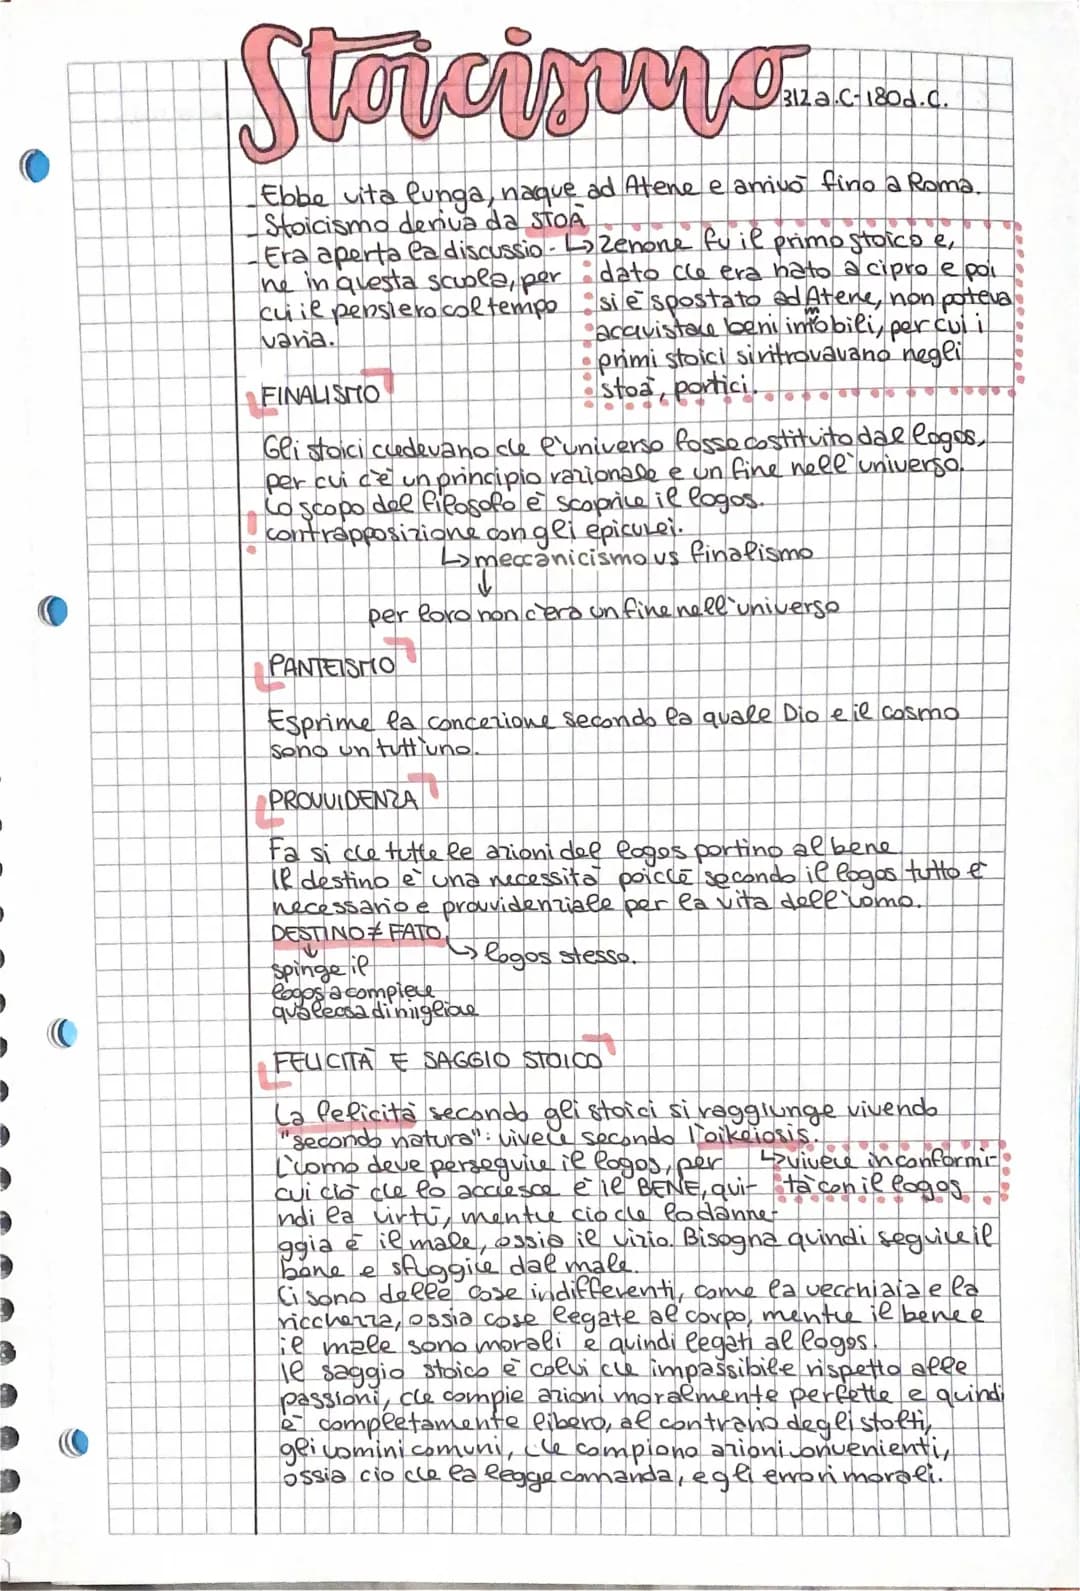 Stoicismo 312 a.C-180 d.C.
- Ebbe vita lunga, naque ad Atene e arrivò fino a Roma.
- Stoicismo deriva da STOÀ
- Era aperta la discussio-
ne in questa scuola, per
cui il pensiero col tempo
varia.
↳ Zenone fu il primo stoico e,
dato che era nato a cipro e poi
si è spostato ad Atene, non poteva
acquistare beni immobili, per cui i
primi stoici si ritrovavano negli
stoà, portici.
FINALISMO
Gli stoici credevano che l'universo fosse costituito dal logos,
per cui c'è un principio razionale e un fine nell'universo.
Lo scopo del filosofo è scoprire il logos.
! contrapposizione con gli epicurei.
↳ meccanicismo vs finalismo
↓
per loro non c'era un fine nell'universo
PANTEISMO
Esprime la concezione secondo la quale Dio e il cosmo
sono un tutt'uno.
PROVVIDENZA
Fa si che tutte le azioni del logos portino al bene.
Il destino è una necessità poichè secondo il logos tutto è
necessario e provvidenziale per la vita dell'uomo.
DESTINO ≠ FATO
↳ logos stesso.
↓
spinge il
logos a compiere
qualcosa di migliore
FELICITÀ E SAGGIO STOICO
La felicità secondo gli stoici si raggiunge vivendo
"secondo natura": vivere secondo l'oikeiosis.
↳ vivere in conformi-
tà con il logos
L'uomo deve perseguire il logos, per
cui ciò che lo accresce è il BENE, qui-
ndi la virtù, mentre cio che lo danne-
ggia è il male, ossia il vizio. Bisogna quindi seguire il
bene e sfuggire dal male.
Ci sono delle cose indifferenti, come la vecchiaia e la
ricchezza, ossia cose legate al corpo, mentre il bene e
il male sono morali e quindi legati al logos.
Il saggio stoico è colui che impassibile rispetto alle
passioni, che compie azioni moralmente perfette e quindi
è completamente libero, al contrario degli stolti,
gli uomini comuni, che compiono azioni convenienti,
ossia cio che la legge comanda, e gli errori morali.